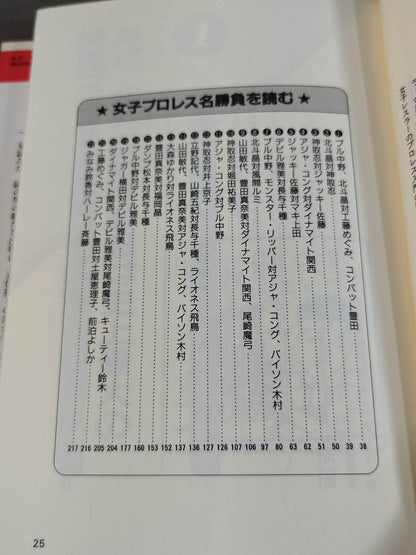 ★ 女子プロレス名勝負を読む ★
❶ ブル中野、北斗晶対工藤めぐみ、コンバット豊田 38
❷ 北斗晶対神取忍 39
❸ 神取忍対ジャッキー佐藤 50
❹ アジャ・コング対ダイナマイト関西 51
❺ ジャッキー佐藤対マキ上田 62
❻ デビル雅美対長与千種 63
❼ ブル中野、モンスター・リッパー対アジャ・コング、バイソン木村 80
❽ 北斗晶対風間ルミ 97
❾ 山田敏代、豊田真奈美対ダイナマイト関西、尾崎魔弓 106
❿ 神取忍対堀田祐美子 107
⓫ アジャ・コング対ブル中野 126
⓬ 神取忍対井上京子 127
⓭ 立野記代、山崎五紀対長与千種、ライオネス飛鳥 136
⓮ 山田敏代、豊田真奈美対アジャ・コング、バイソン木村 137
⓯ 大森ゆかり対ライオネス飛鳥 152
⓰ 豊田真奈美対福岡晶 153
⓱ ダンプ松本対長与千種 160
⓲ ブル中野対デビル雅美 177
⓳ ジャガー横田対デビル雅美 204
⓴ ダイナマイト関西、デビル雅美対尾崎魔弓、キューティー鈴木 205
㉑ 工藤めぐみ、コンバット豊田対土屋恵理子、前泊よしか 216
㉒ みなみ鈴香対ハーレー斉藤 217
25